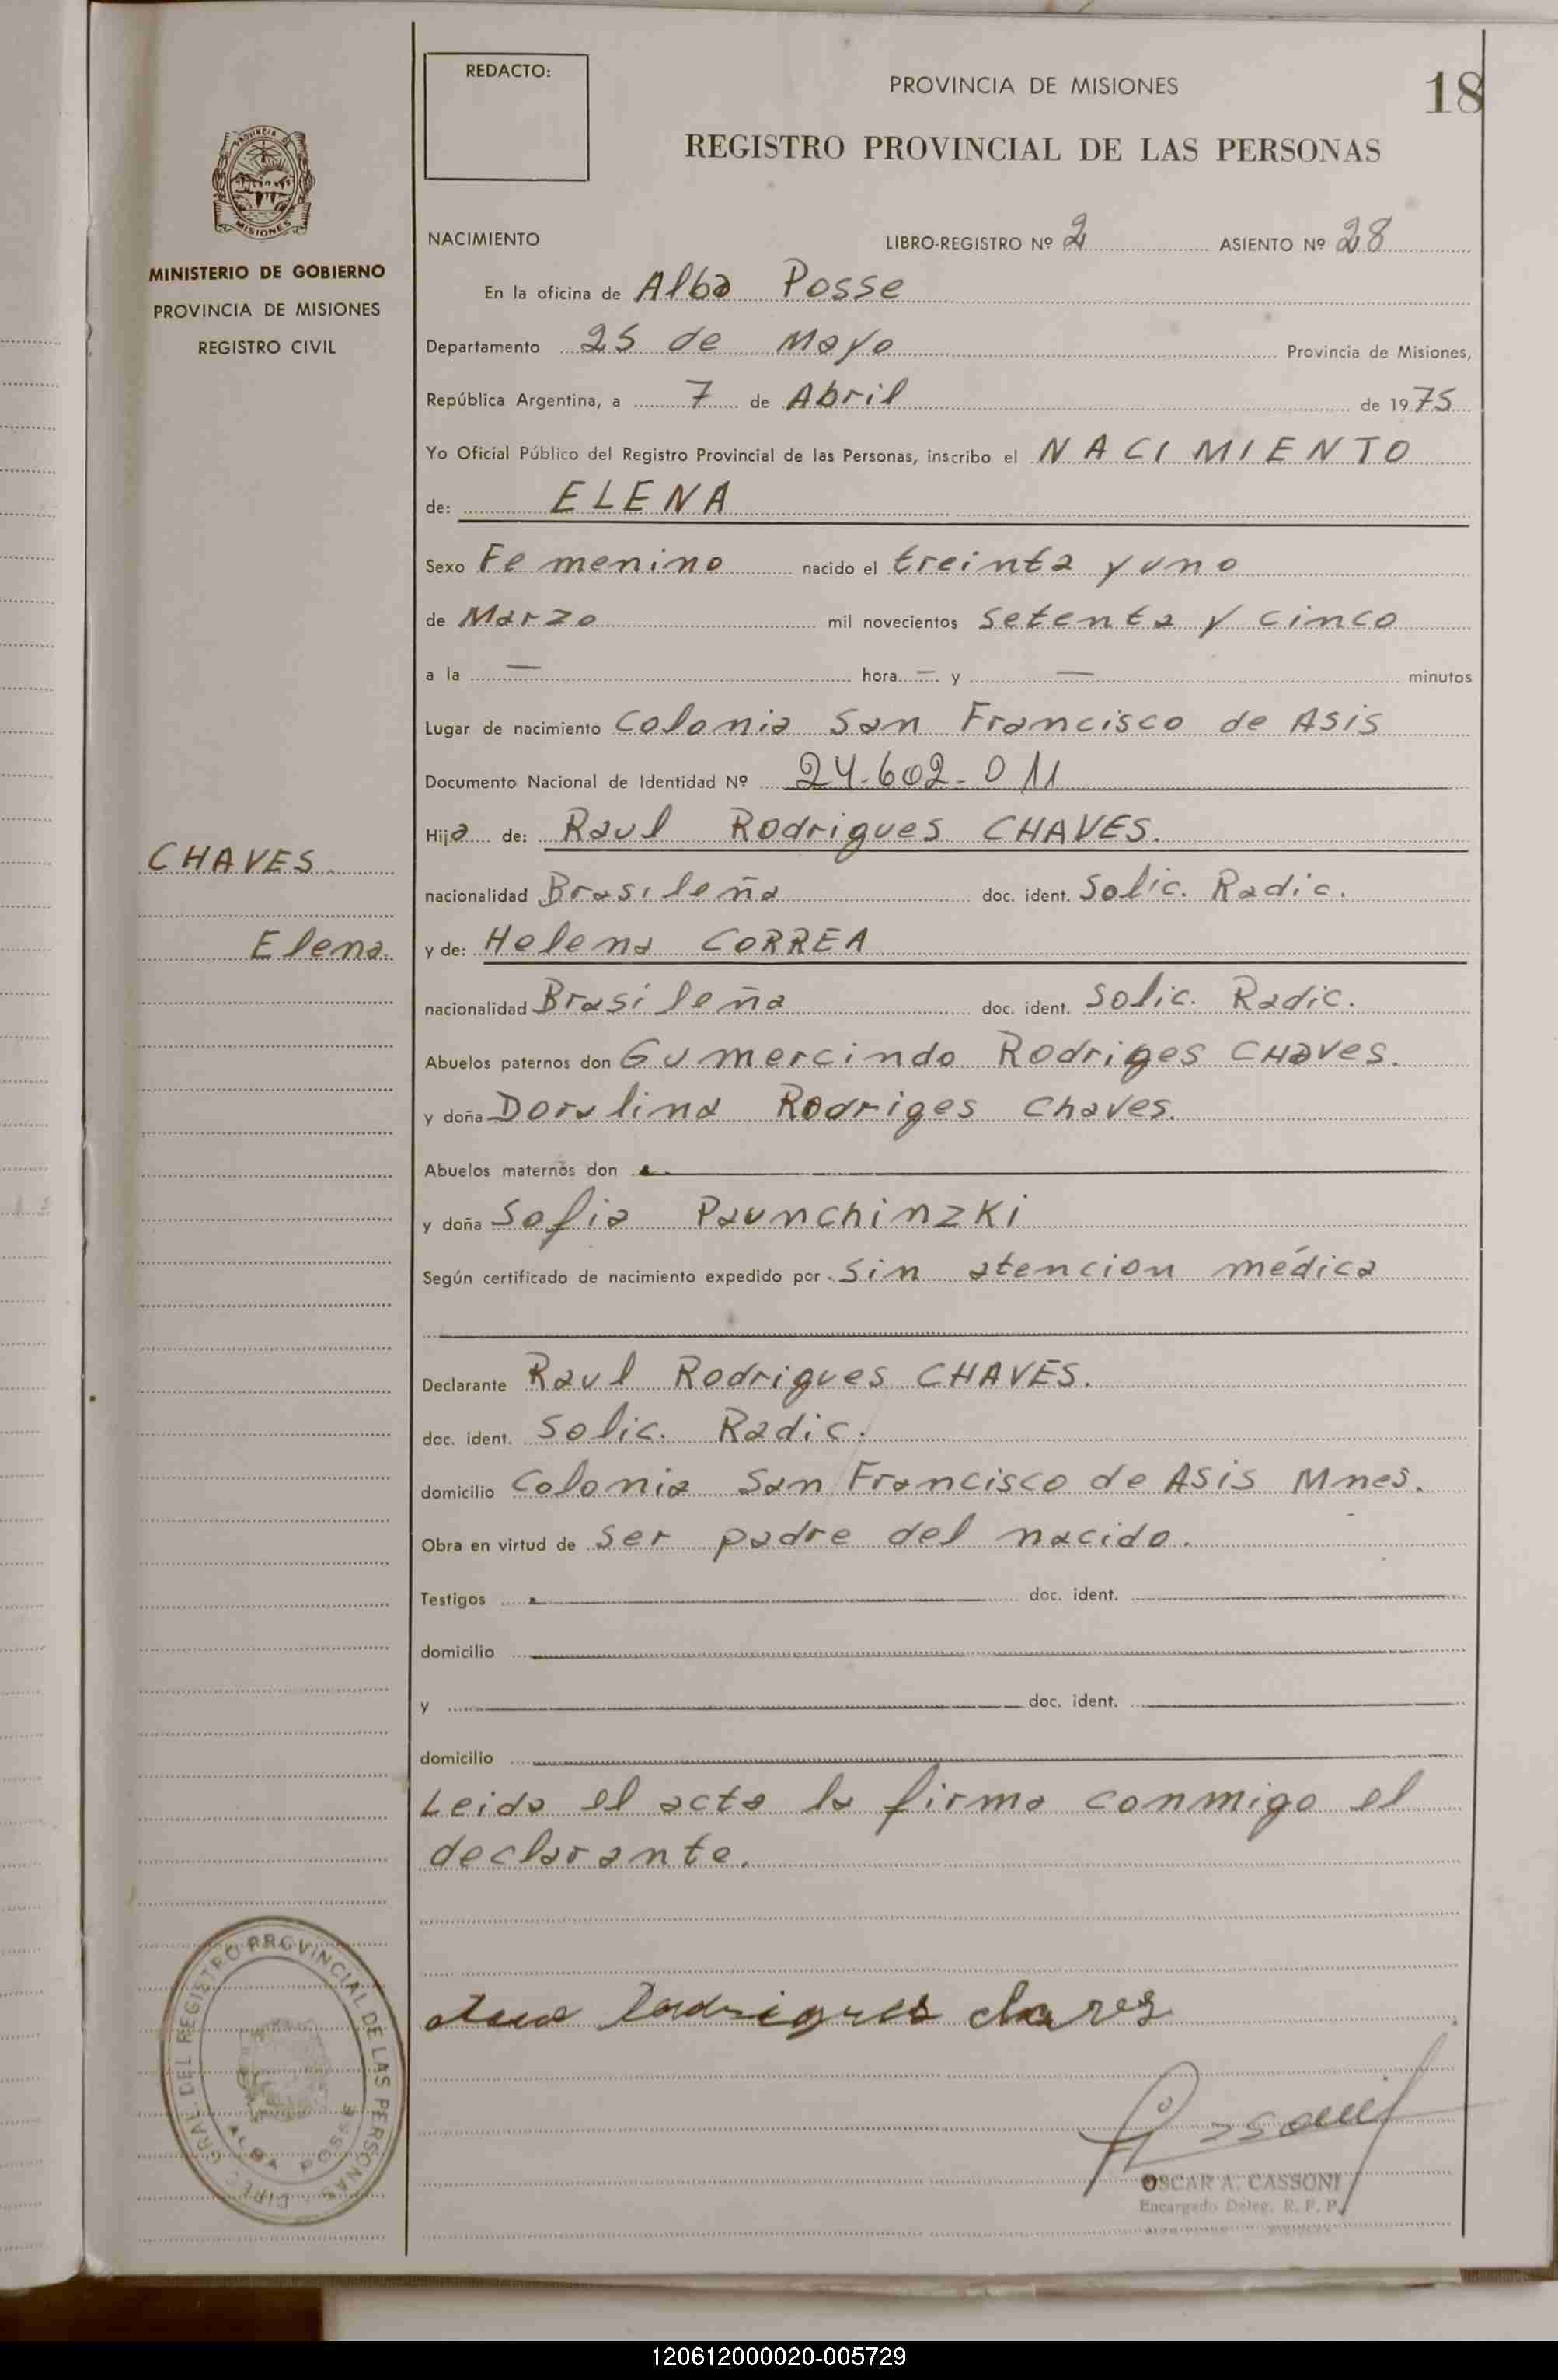 REDACTO:
PROVINCIA DE MISIONES
18
REGISTRO PROVINCIAL DE LAS PERSONAS
PROVINCIA DE
MISIONES
MINISTERIO DE GOBIERNO
PROVINCIA DE MISIONES
REGISTRO CIVIL
NACIMIENTO LIBRO-REGISTRO Nº 2 ASIENTO Nº 28
En la oficina de Alba Posse
Departamento 25 de Mayo Provincia de Misiones,
República Argentina, a 7 de Abril de 1975
Yo Oficial Público del Registro Provincial de las Personas, inscribo el NACIMIENTO
de: ELENA
Sexo Femenino nacido el treinta y uno
de Marzo mil novecientos setenta y cinco
a la — hora — y — minutos
Lugar de nacimiento Colonia San Francisco de Asis
Documento Nacional de Identidad Nº 24.602.011
Hija de: Raul Rodrigues CHAVES.
CHAVES.
nacionalidad Brasileña doc. ident. Solic. Radic.
Elena.
y de: Helena CORREA
nacionalidad Brasileña doc. ident. Solic. Radic.
Abuelos paternos don Gumercindo Rodriges CHaves.
y doña Rodriges Chaves.
Abuelos maternos don
y doña Sofia Paunchinzki
Según certificado de nacimiento expedido por Sin atencion médica
Declarante Raul Rodrigues CHAVES.
doc. ident. Solic. Radic.
domicilio Colonia San Francisco de Asis Mnes.
Obra en virtud de ser padre del nacido.
Testigos doc. ident.
domicilio
y doc. ident.
domicilio
Leida el acta la firma conmigo el
declarante.
DEL REGISTRO PROVINCIAL DE LAS PERSONAS
ALBA POSSE
OSCAR A. CASSONI
Encargado Deleg. R. P. P.
120612000020-005729